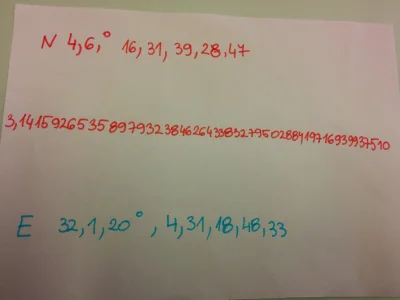 N 4,6,° 16,31,39,28,47
3,14159265358979323846264338327950288419716939937510
E 32,1,20°, 4,31,18,48,33